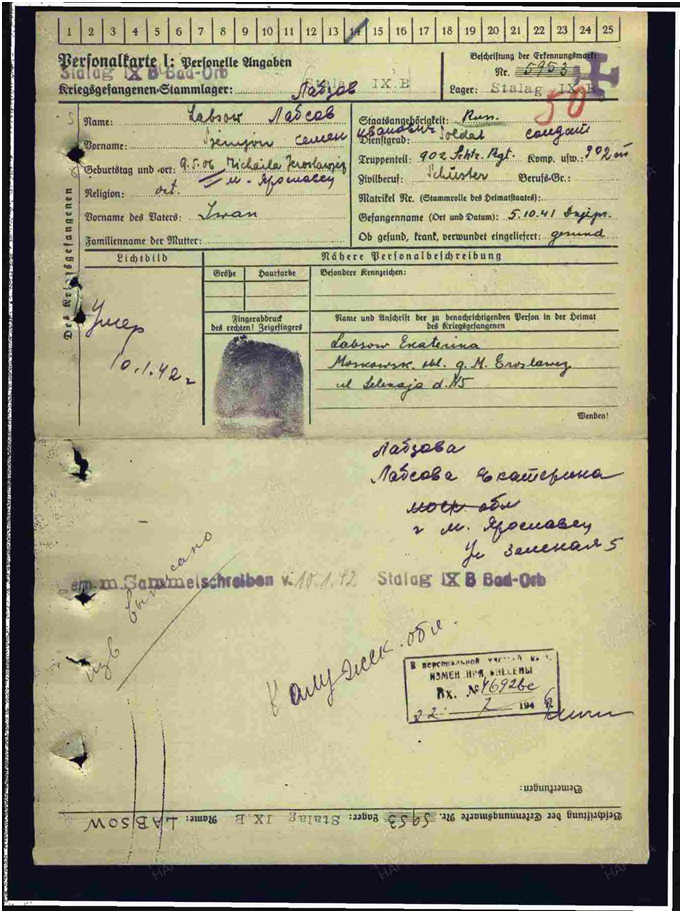 1 2 3 4 5 6 7 8 9 10 11 12 13 14 15 16 17 18 19 20 21 22 23 24 25
Personalkarte I: Personelle Angaben
Beschriftung der Erkennungsmarke
Stalag IX B Bad-Orb
Nr. 5953
Kriegsgefangenen-Stammlager: Stalag IX.B
Lager: Stalag IX.B
Лабзов
50
Des Kriegsgefangenen
Name: Labsow Лабсов
Staatsangehörigkeit: Russ.
Vorname: Семен Иванович
Dienstgrad: Soldat солдат
Geburtstag und -ort: 9.5.06 Michaila Jeroslawjez
Truppenteil: 902 Schtz. Rgt. Komp. usw.: 902
м. Ярославец
Zivilberuf: Schuster Berufs-Gr.:
Religion: ort.
Matrikel Nr. (Stammrolle des Heimatstaates):
Vorname des Vaters: Iwan
Gefangennahme (Ort und Datum): 5.10.41
Familienname der Mutter:
Ob gesund, krank, verwundet eingeliefert: gesund
Lichtbild
Nähere Personalbeschreibung
Größe Haarfarbe
Besondere Kennzeichen:
Fingerabdruck
des rechten! Zeigefingers
Name und Anschrift der zu benachrichtigenden Person in der Heimat
des Kriegsgefangenen
Умер
10.1.42 г
Labsow Ekaterina
Moskowsk. obl. g. M. Eroslawez
ul Selenaja d. N5
Wenden!
Лабзова
Лабсова Екатерина
моск обл
г м. Ярославец
Ул Земская 5
выписано
gem. m. Sammelschreiben v. 10.1.42 Stalag IX B Bad-Orb
Калужск. обл.
В персональной учетной
ИЗМЕНЕНИЯ ВНЕСЕНЫ
Вх. № 4692
22 194
Bemerkungen:
Beschriftung der Erkennungsmarke Nr. 5953 Lager: Stalag IX.B Name: LABSOW